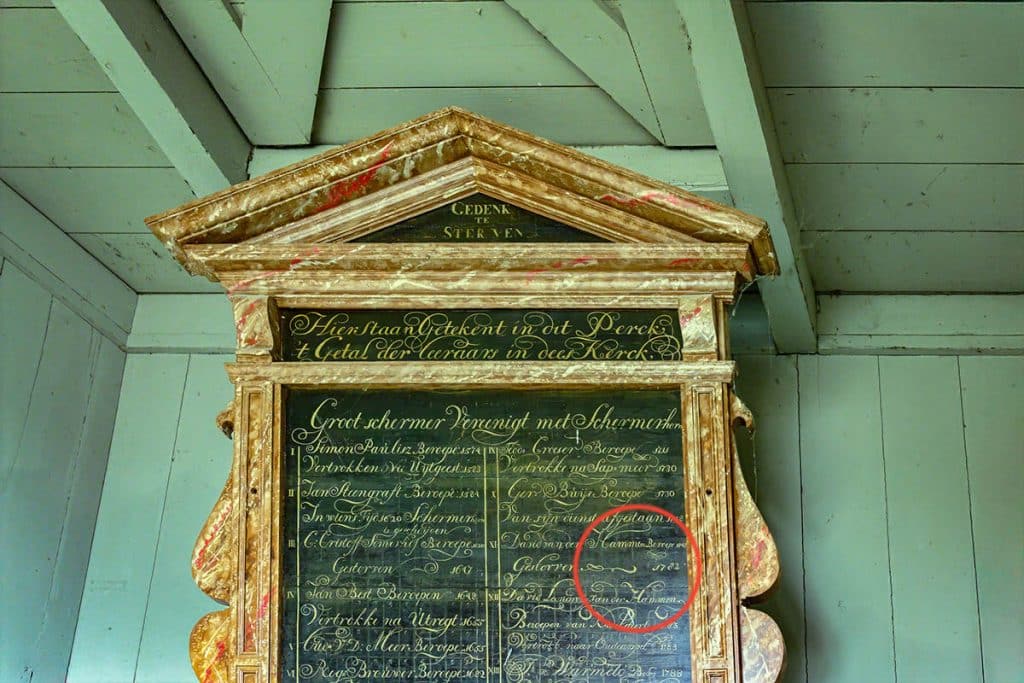 GEDENK
TE
STERVEN
Hier staan Getekent in dit Perck
't Getal der Leeraars in dees Kerck.
Groot schermer Verenigt met Schermerhorn
I Simon Paulinz Beroepe 1574
Vertrokken na Uytgeest
II Jan Steengraft Beroepe 1584
In wiens Tyd 1620 Schermerhorn
is geschijden
III Beroepe
Gestorven 1647
IV Jan Best Beroepen 1648
Vertrokke na Utregt 1655
V D. Meer Beroepe 1655
VI Roge Brouwer Beroepe
IX Croeser Beroepe 1711
Vertrokke na Sapmeer 1730
X Ger. Buijs Beroepe 1730
Van sijn dienst afgestaan
XI David van der Hamm Beroepe
Gestorven 1782
XII David van der Hammen
Beroepen van
Vertrokk naar 1788
XIII Warmels Beroep 1788